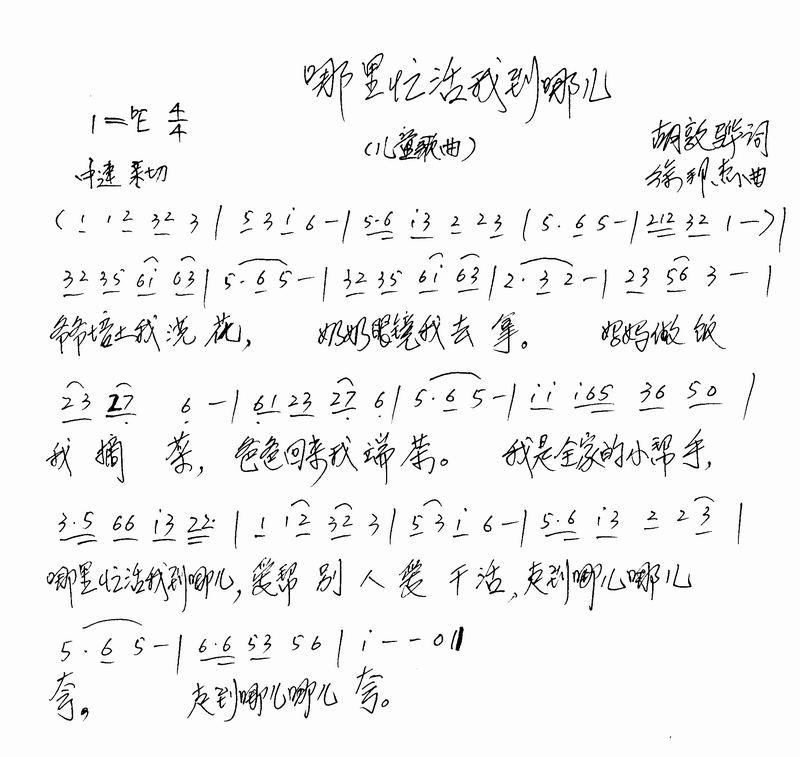 哪里忙活我到哪儿
1=♭E 4/4
(儿童歌曲)
胡敦骅词
中速 亲切
徐邦杰曲
(1 12 32 3 | 5 3 i 6 - | 5·6 i3 2 23 | 5·6 5 - | 212 32 1 -) |
32 35 6i 63 | 5·6 5 - | 32 35 6i 63 | 2·3 2 - | 23 56 3 - |
爷爷培土我浇花, 奶奶眼镜我去拿。 妈妈做饭
23 27 6 - | 61 23 27 6 | 5·6 5 - | ii i65 36 50 |
我摘菜, 爸爸回来我端茶。 我是全家的小帮手,
3·5 66 i3 22· | 1 12 32 3 | 5 3 i 6 - | 5·6 i3 2 23 |
哪里忙活我到哪儿, 爱帮别人爱干活, 走到哪儿哪儿
5·6 5 - | 6·6 53 56 | i - - 0 ‖
夸, 走到哪儿哪儿夸。